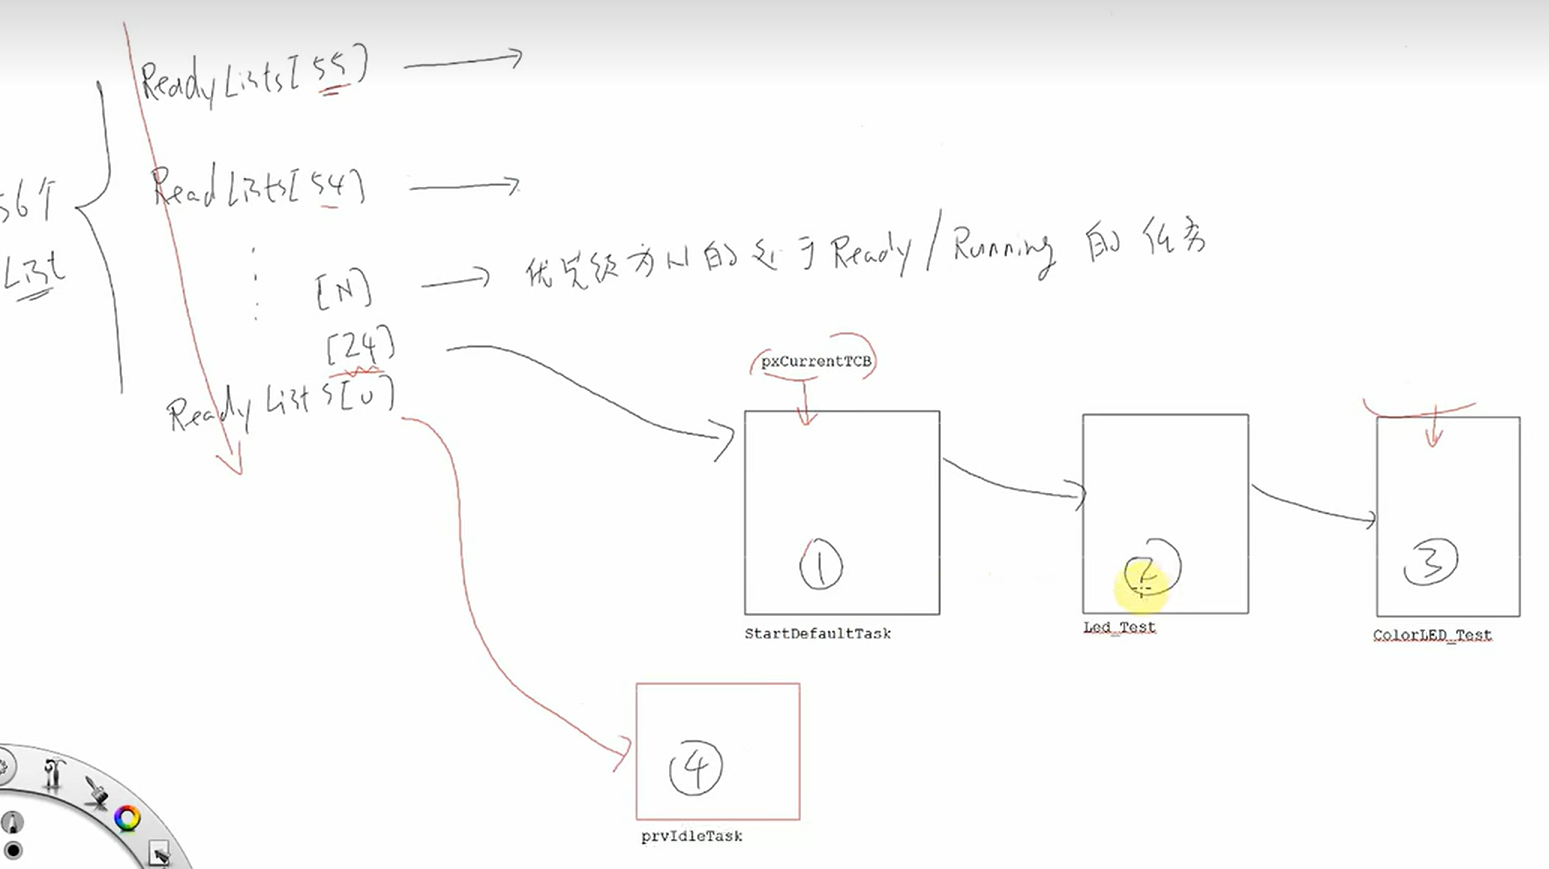 ReadyLists[55]
ReadLists[54]
56个
List
[N]
优先级为N的处于Ready/Running的任务
[24]
ReadyLists[0]
pxCurrentTCB
①
②
③
StartDefaultTask
Led_Test
ColorLED_Test
④
prvIdleTask